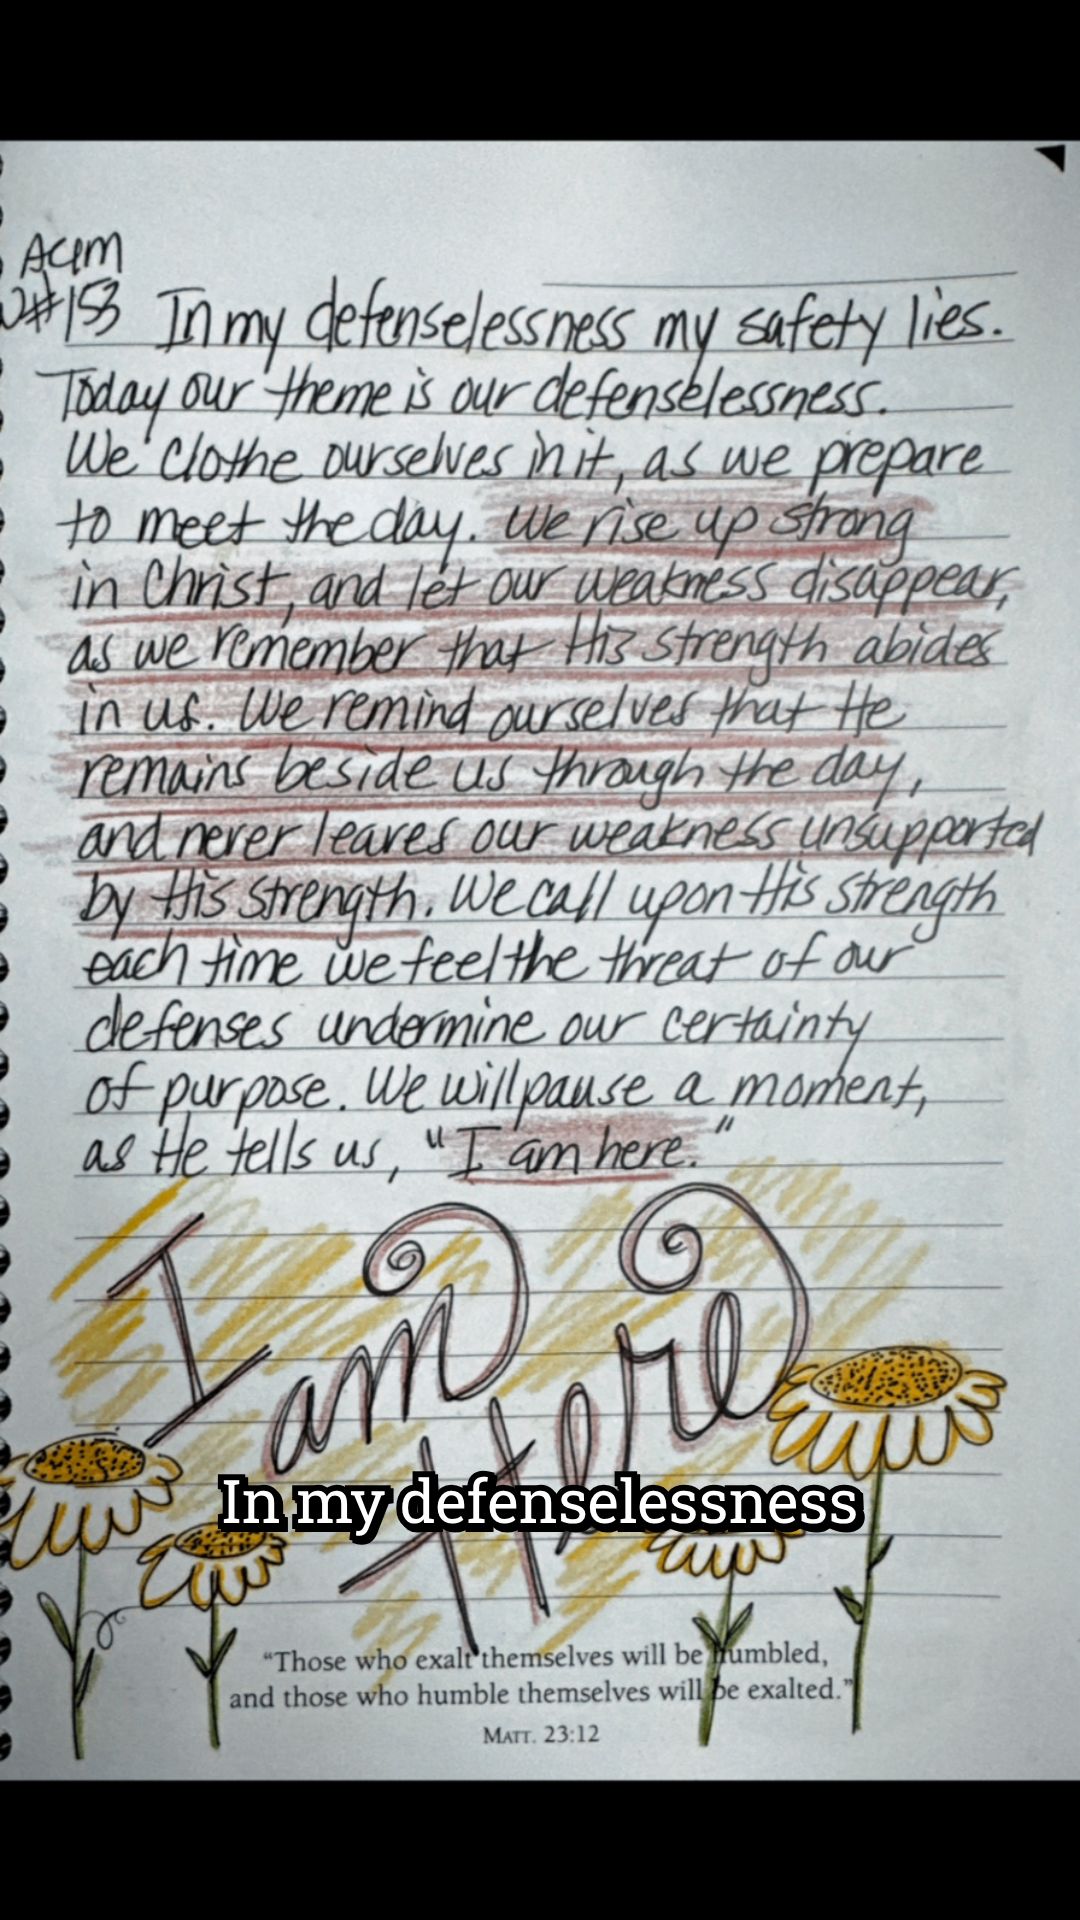 ACIM
W#153 In my defenselessness my safety lies.
Today our theme is our defenselessness.
We clothe ourselves in it, as we prepare
to meet the day. We rise up strong
in Christ, and let our weakness disappear,
as we remember that His strength abides
in us. We remind ourselves that He
remains beside us through the day,
and never leaves our weakness unsupported
by His strength. We call upon His strength
each time we feel the threat of our
defenses undermine our certainty
of purpose. We will pause a moment,
as He tells us, “I am here.”
I am Here
In my defenselessness
“Those who exalt themselves will be humbled,
and those who humble themselves will be exalted.”
MATT. 23:12